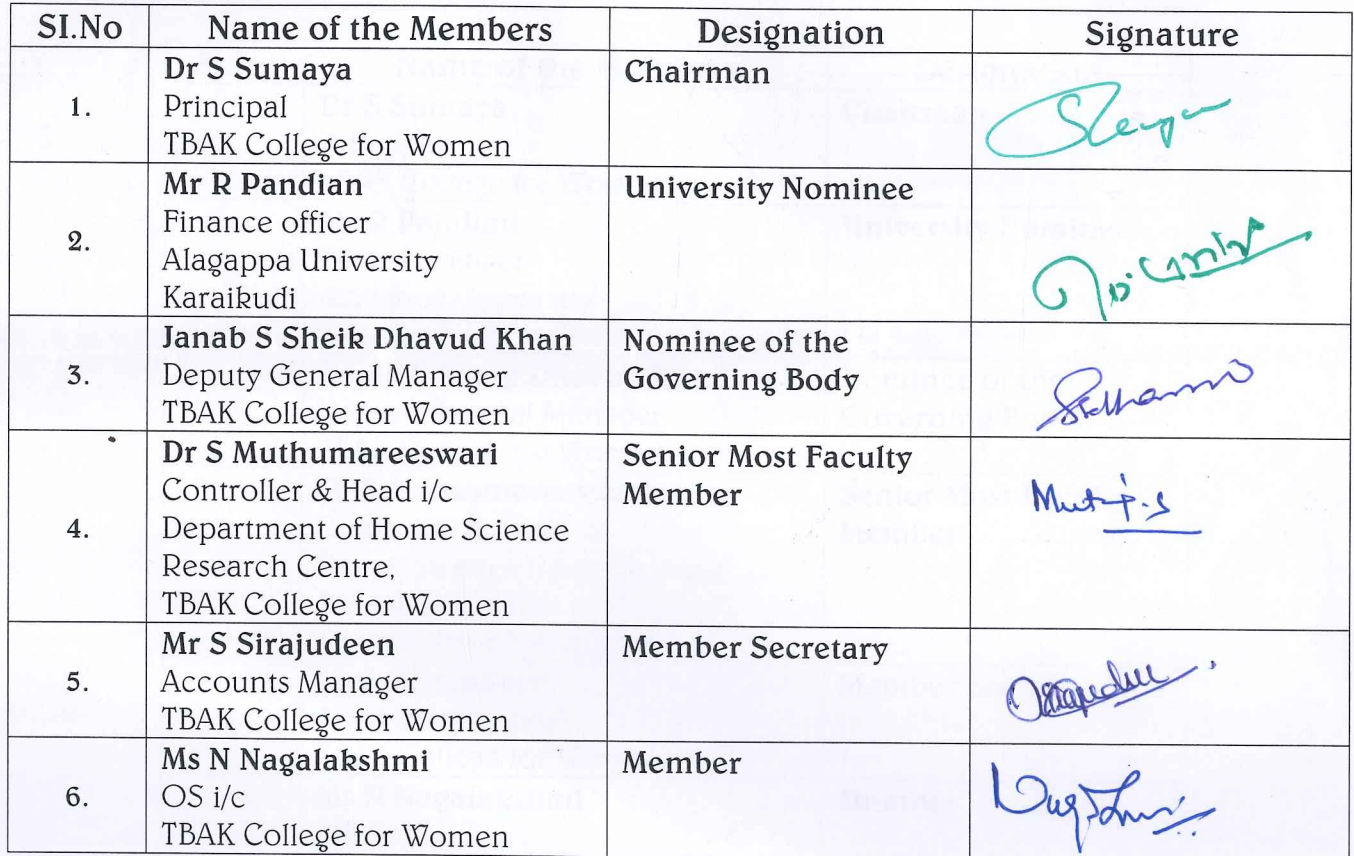 SI.No Name of the Members Designation Signature
1. Dr S Sumaya
Principal
TBAK College for Women
Chairman
2. Mr R Pandian
Finance officer
Alagappa University
Karaikudi
University Nominee
3. Janab S Sheik Dhavud Khan
Deputy General Manager
TBAK College for Women
Nominee of the
Governing Body
4. Dr S Muthumareeswari
Controller & Head i/c
Department of Home Science
Research Centre,
TBAK College for Women
Senior Most Faculty
Member
5. Mr S Sirajudeen
Accounts Manager
TBAK College for Women
Member Secretary
6. Ms N Nagalakshmi
OS i/c
TBAK College for Women
Member